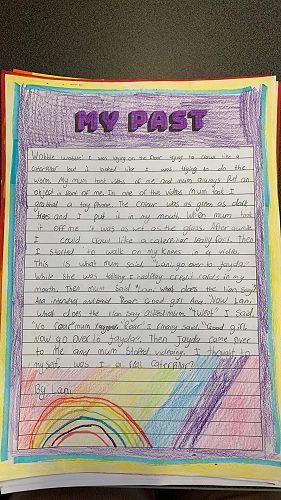 MY PAST
Wobble wobble! I was lying on the floor trying to crawl like a
caterpillar but I looked like I was trying to do the
worm. My mum has videos of me and mum always put an
object in front of me. In one of the videos mum took I
grabbed a toy phone. The colour was as green as dark
trees and I put it in my mouth. When mum took
it off me it was as wet as the grass. After awhile
I could crawl like a caterpillar really fast. Then
I started to walk on my knees in a video.
This is what mum said "Lani, go over to Jayda."
While she was talking I had credit cards in my
mouth. Then mum said "Lani what does the lion say?"
And I said "Roar" Good girl. And "Now Lani,
what does the lion say" asked mum. "Tweet" I said.
"No roar" mum "Roar" I finally said. "Good girl
now go over to Jayda". Then Jayda came over
to me and mum stopped videoing. I thought to
myself was I a real caterpillar?
By Lani